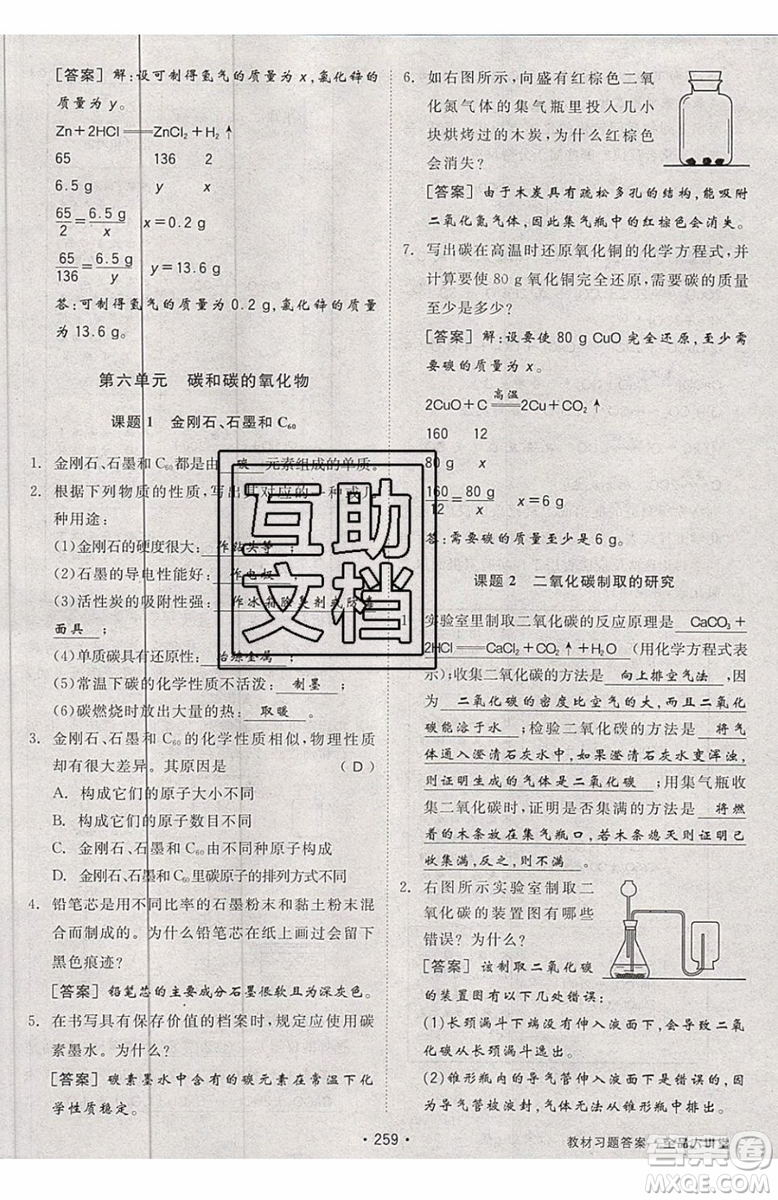 [答案] 解:设可制得氢气的质量为 x,氯化锌的
质量为 y。
Zn+2HCl══ZnCl₂+H₂↑
65 136 2
6.5 g y x
65/2=6.5 g/x x=0.2 g
65/136=6.5 g/y y=13.6 g
答:可制得氢气的质量为 0.2 g,氯化锌的质量
为 13.6 g。
第六单元 碳和碳的氧化物
课题 1 金刚石、石墨和 C₆₀
1. 金刚石、石墨和 C₆₀都是由 碳 元素组成的单质。
2. 根据下列物质的性质,写出其对应的一种或几
种用途:
(1)金刚石的硬度很大: 作钻头等 ;
(2)石墨的导电性能好: 作电极 ;
(3)活性炭的吸附性强: 作冰箱除臭剂或防毒
面具 ;
(4)单质碳具有还原性: 冶炼金属 ;
(5)常温下碳的化学性质不活泼: 制墨 ;
(6)碳燃烧时放出大量的热: 取暖 。
3. 金刚石、石墨和 C₆₀的化学性质相似,物理性质
却有很大差异。其原因是 ( D )
A. 构成它们的原子大小不同
B. 构成它们的原子数目不同
C. 金刚石、石墨和 C₆₀由不同种原子构成
D. 金刚石、石墨和 C₆₀里碳原子的排列方式不同
4. 铅笔芯是由不同比率的石墨粉末和黏土粉末混
合而制成的。为什么铅笔芯在纸上画过会留下
黑色痕迹?
[答案] 铅笔芯的主要成分石墨很软且为深灰色。
5. 在书写具有保存价值的档案时,规定应使用碳
素墨水。为什么?
[答案] 碳素墨水中含有的碳元素在常温下化
学性质稳定。
6. 如右图所示,向盛有红棕色二氧
化氮气体的集气瓶里投入几小
块烘烤过的木炭,为什么红棕色
会消失?
[答案] 由于木炭具有疏松多孔的结构,能吸附
二氧化氮气体,因此集气瓶中的红棕色会消失。
7. 写出碳在高温时还原氧化铜的化学方程式,并
计算要使 80 g 氧化铜完全还原,需要碳的质量
至少是多少?
[答案] 解:设要使 80 g CuO 完全还原,至少需
要碳的质量为 x。
2CuO+C══高温══2Cu+CO₂↑
160 12
80 g x
160/12=80 g/x x=6 g
答:需要碳的质量至少是 6 g。
课题 2 二氧化碳制取的研究
1. 实验室里制取二氧化碳的反应原理是 CaCO₃+
2HCl══CaCl₂+CO₂↑+H₂O (用化学方程式表
示);收集二氧化碳的方法是 向上排空气法 ,因
为 二氧化碳的密度比空气的大,而且二氧化碳
能溶于水 ;检验二氧化碳的方法是 将气
体通入澄清石灰水中,如果澄清石灰水变浑浊,则
证明生成的气体是二氧化碳 ;用集气瓶收集
二氧化碳时,证明是否集满的方法是 将燃
着的木条放在集气瓶口,若木条熄灭则证明已
收集满,反之,则不满 。
2. 右图所示实验室制取二
氧化碳的装置图有哪些
错误?为什么?
[答案] 该制取二氧化碳的装置图有以下错误:
(1)长颈漏斗下端没有伸入液面以下,二氧
化碳会从长颈漏斗逸出。
(2)锥形瓶内的导气管伸入液面以下是错误的,
导气管被液封,气体无法从锥形瓶中逸出。
·259·
教材习题答案 全品大讲堂
互助
文档